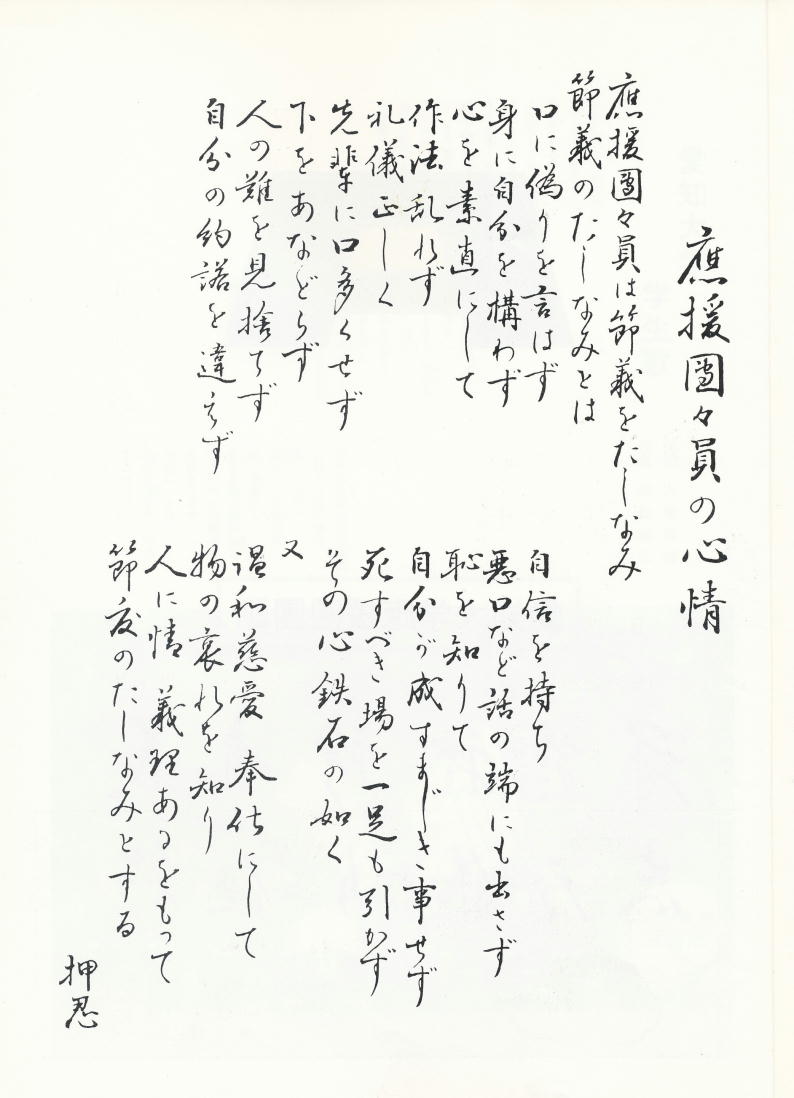 應援團々員の心情
應援團々員は節義をたしなみ
節義のたしなみとは
口に偽りを言はず
身に自分を構わず
心を素直にして
作法乱れず
礼儀正しく
先輩に口多くせず
下をあなどらず
人の難を見捨てず
自分の約諾を違えず
自信を持ち
悪口など話の端にも出さず
恥を知りて
自分が成すまじき事せず
死すべき場を一足も引かず
その心鉄石の如く
又
温和慈愛 奉仕にして
物の哀れを知り
人に情 義理あるをもって
節度のたしなみとする
押忍